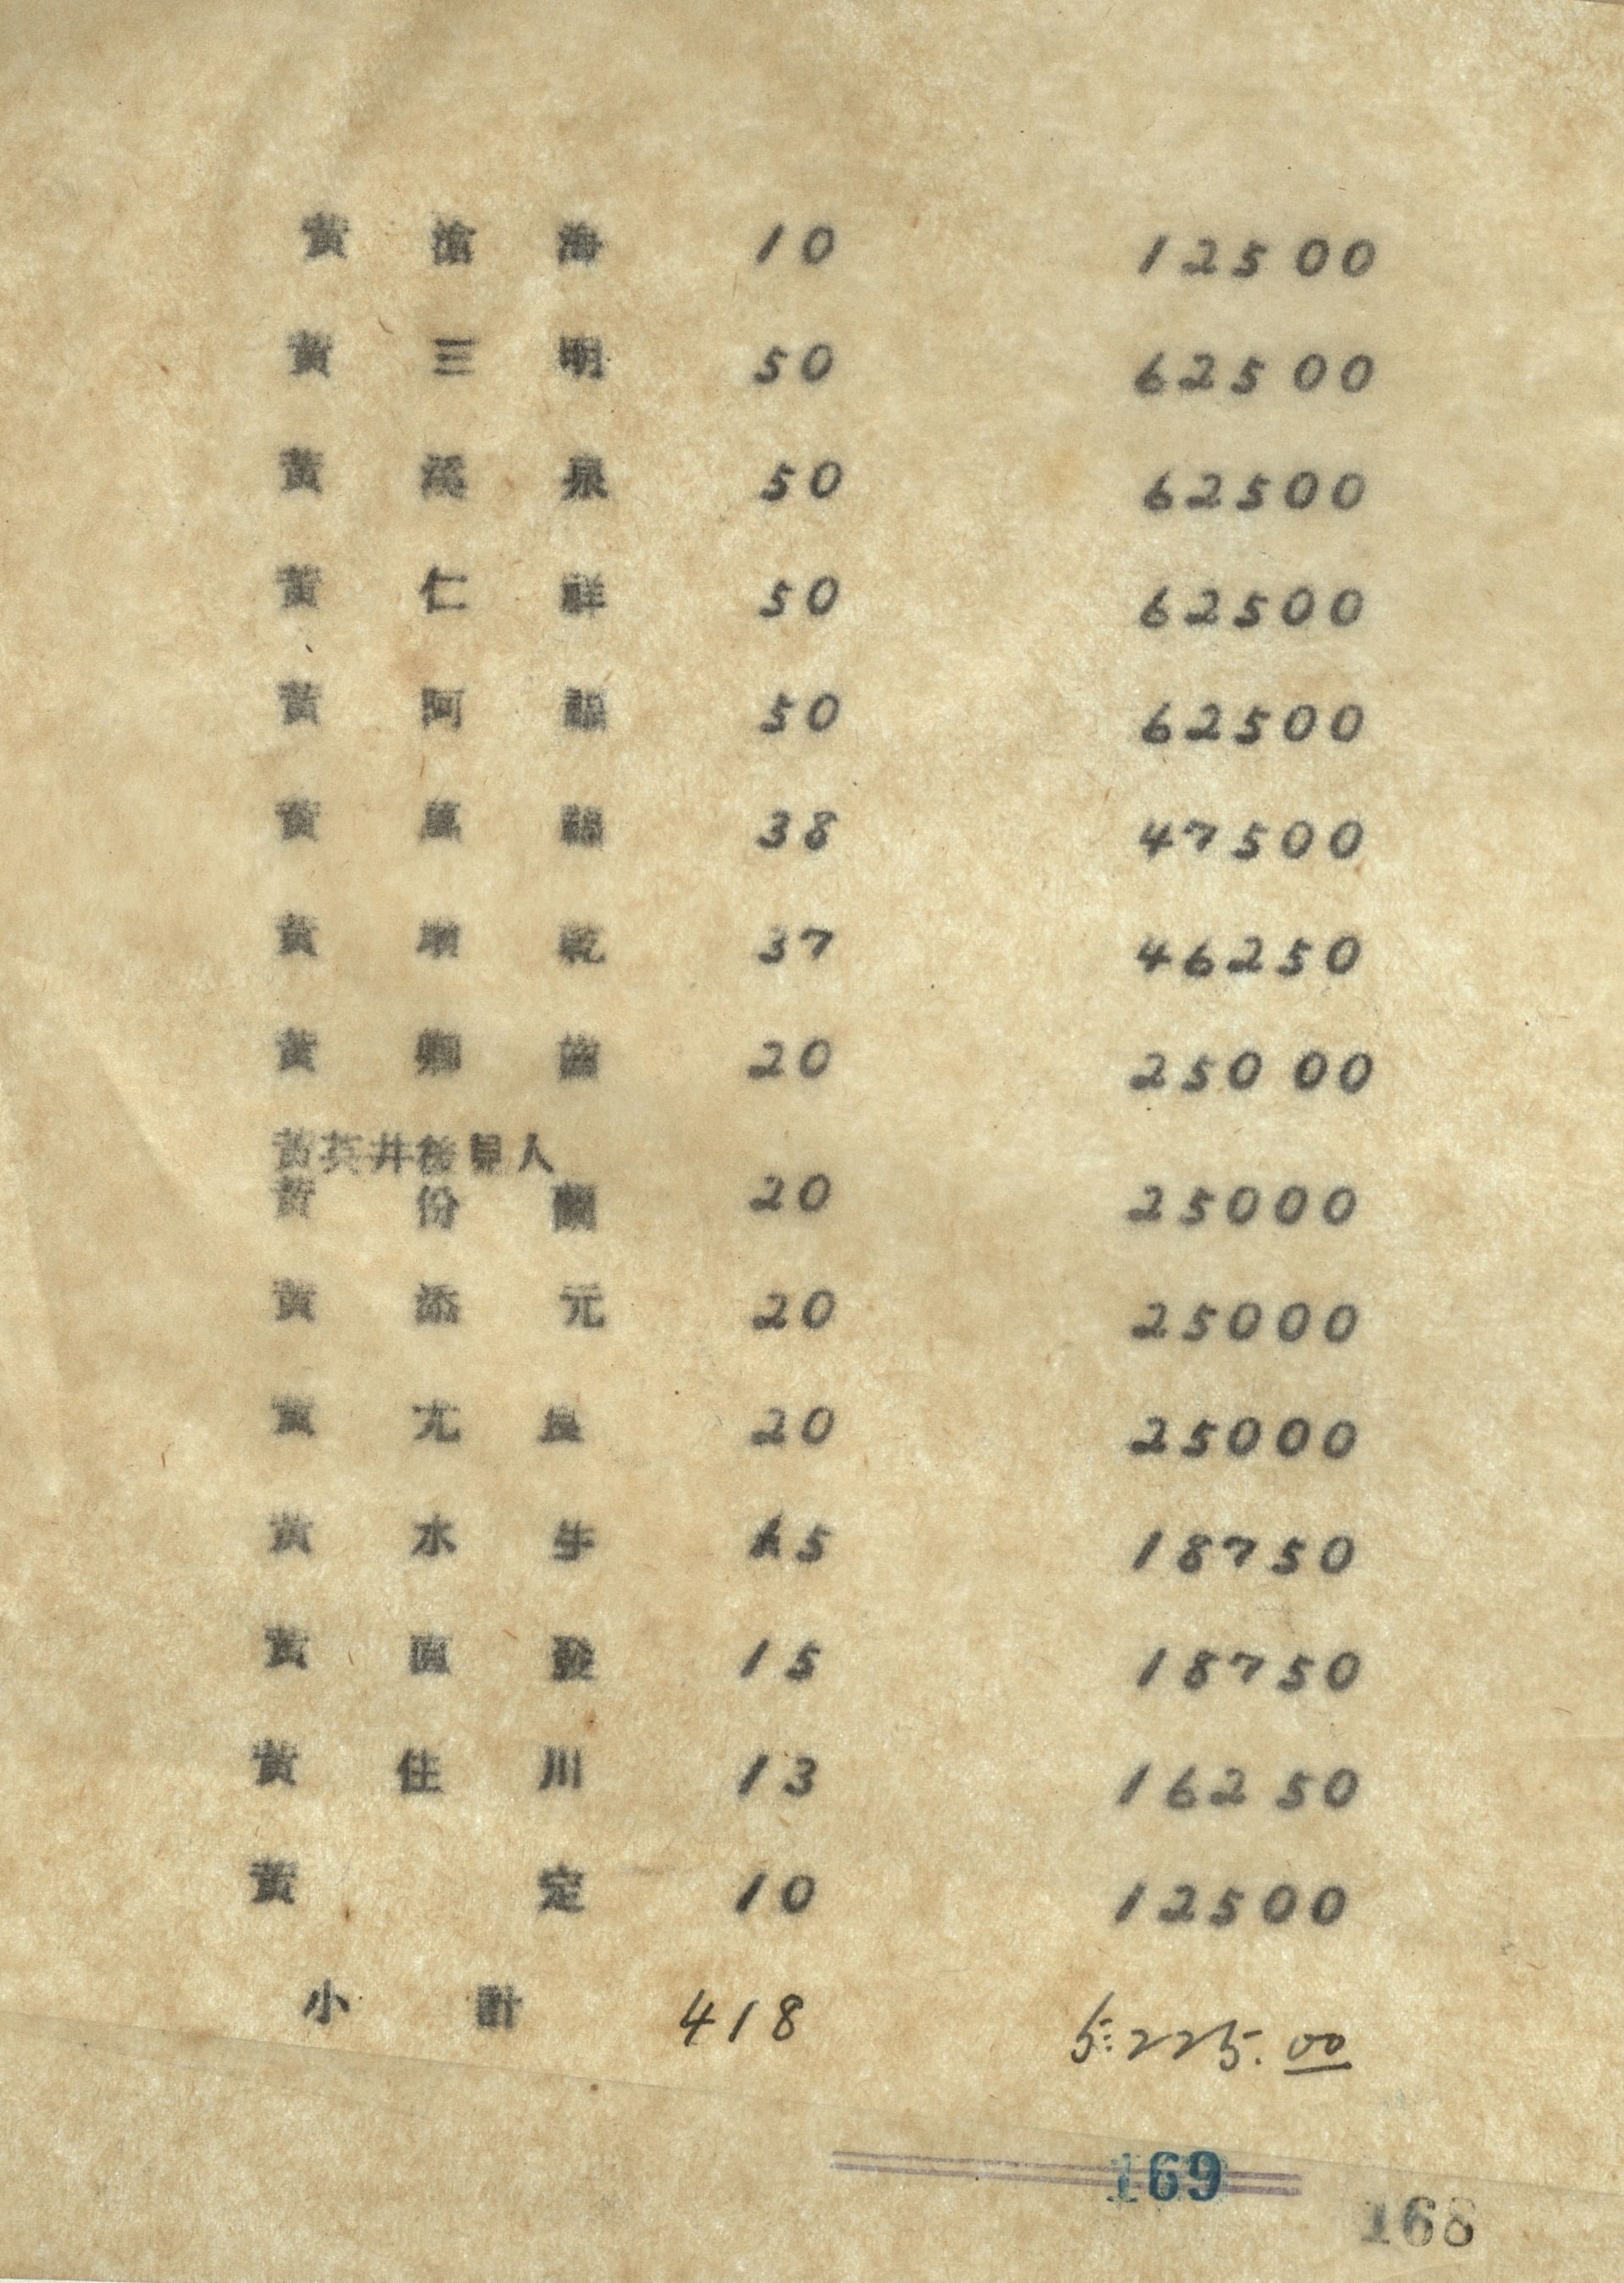 黃 滄 海 10 12500
黃 三 明 50 62500
黃 溪 泉 50 62500
黃 仁 祥 50 62500
黃 阿 50 62500
黃 萬 38 47500
黃 乾 37 46250
黃 20 25000
黃英井後見人
黃 份 蘭 20 25000
黃 添 元 20 25000
黃 尤 良 20 25000
黃 水 牛 15 18750
黃 15 18750
黃 住 川 13 16250
黃 定 10 12500
小 計 418 5,225.00
169
168